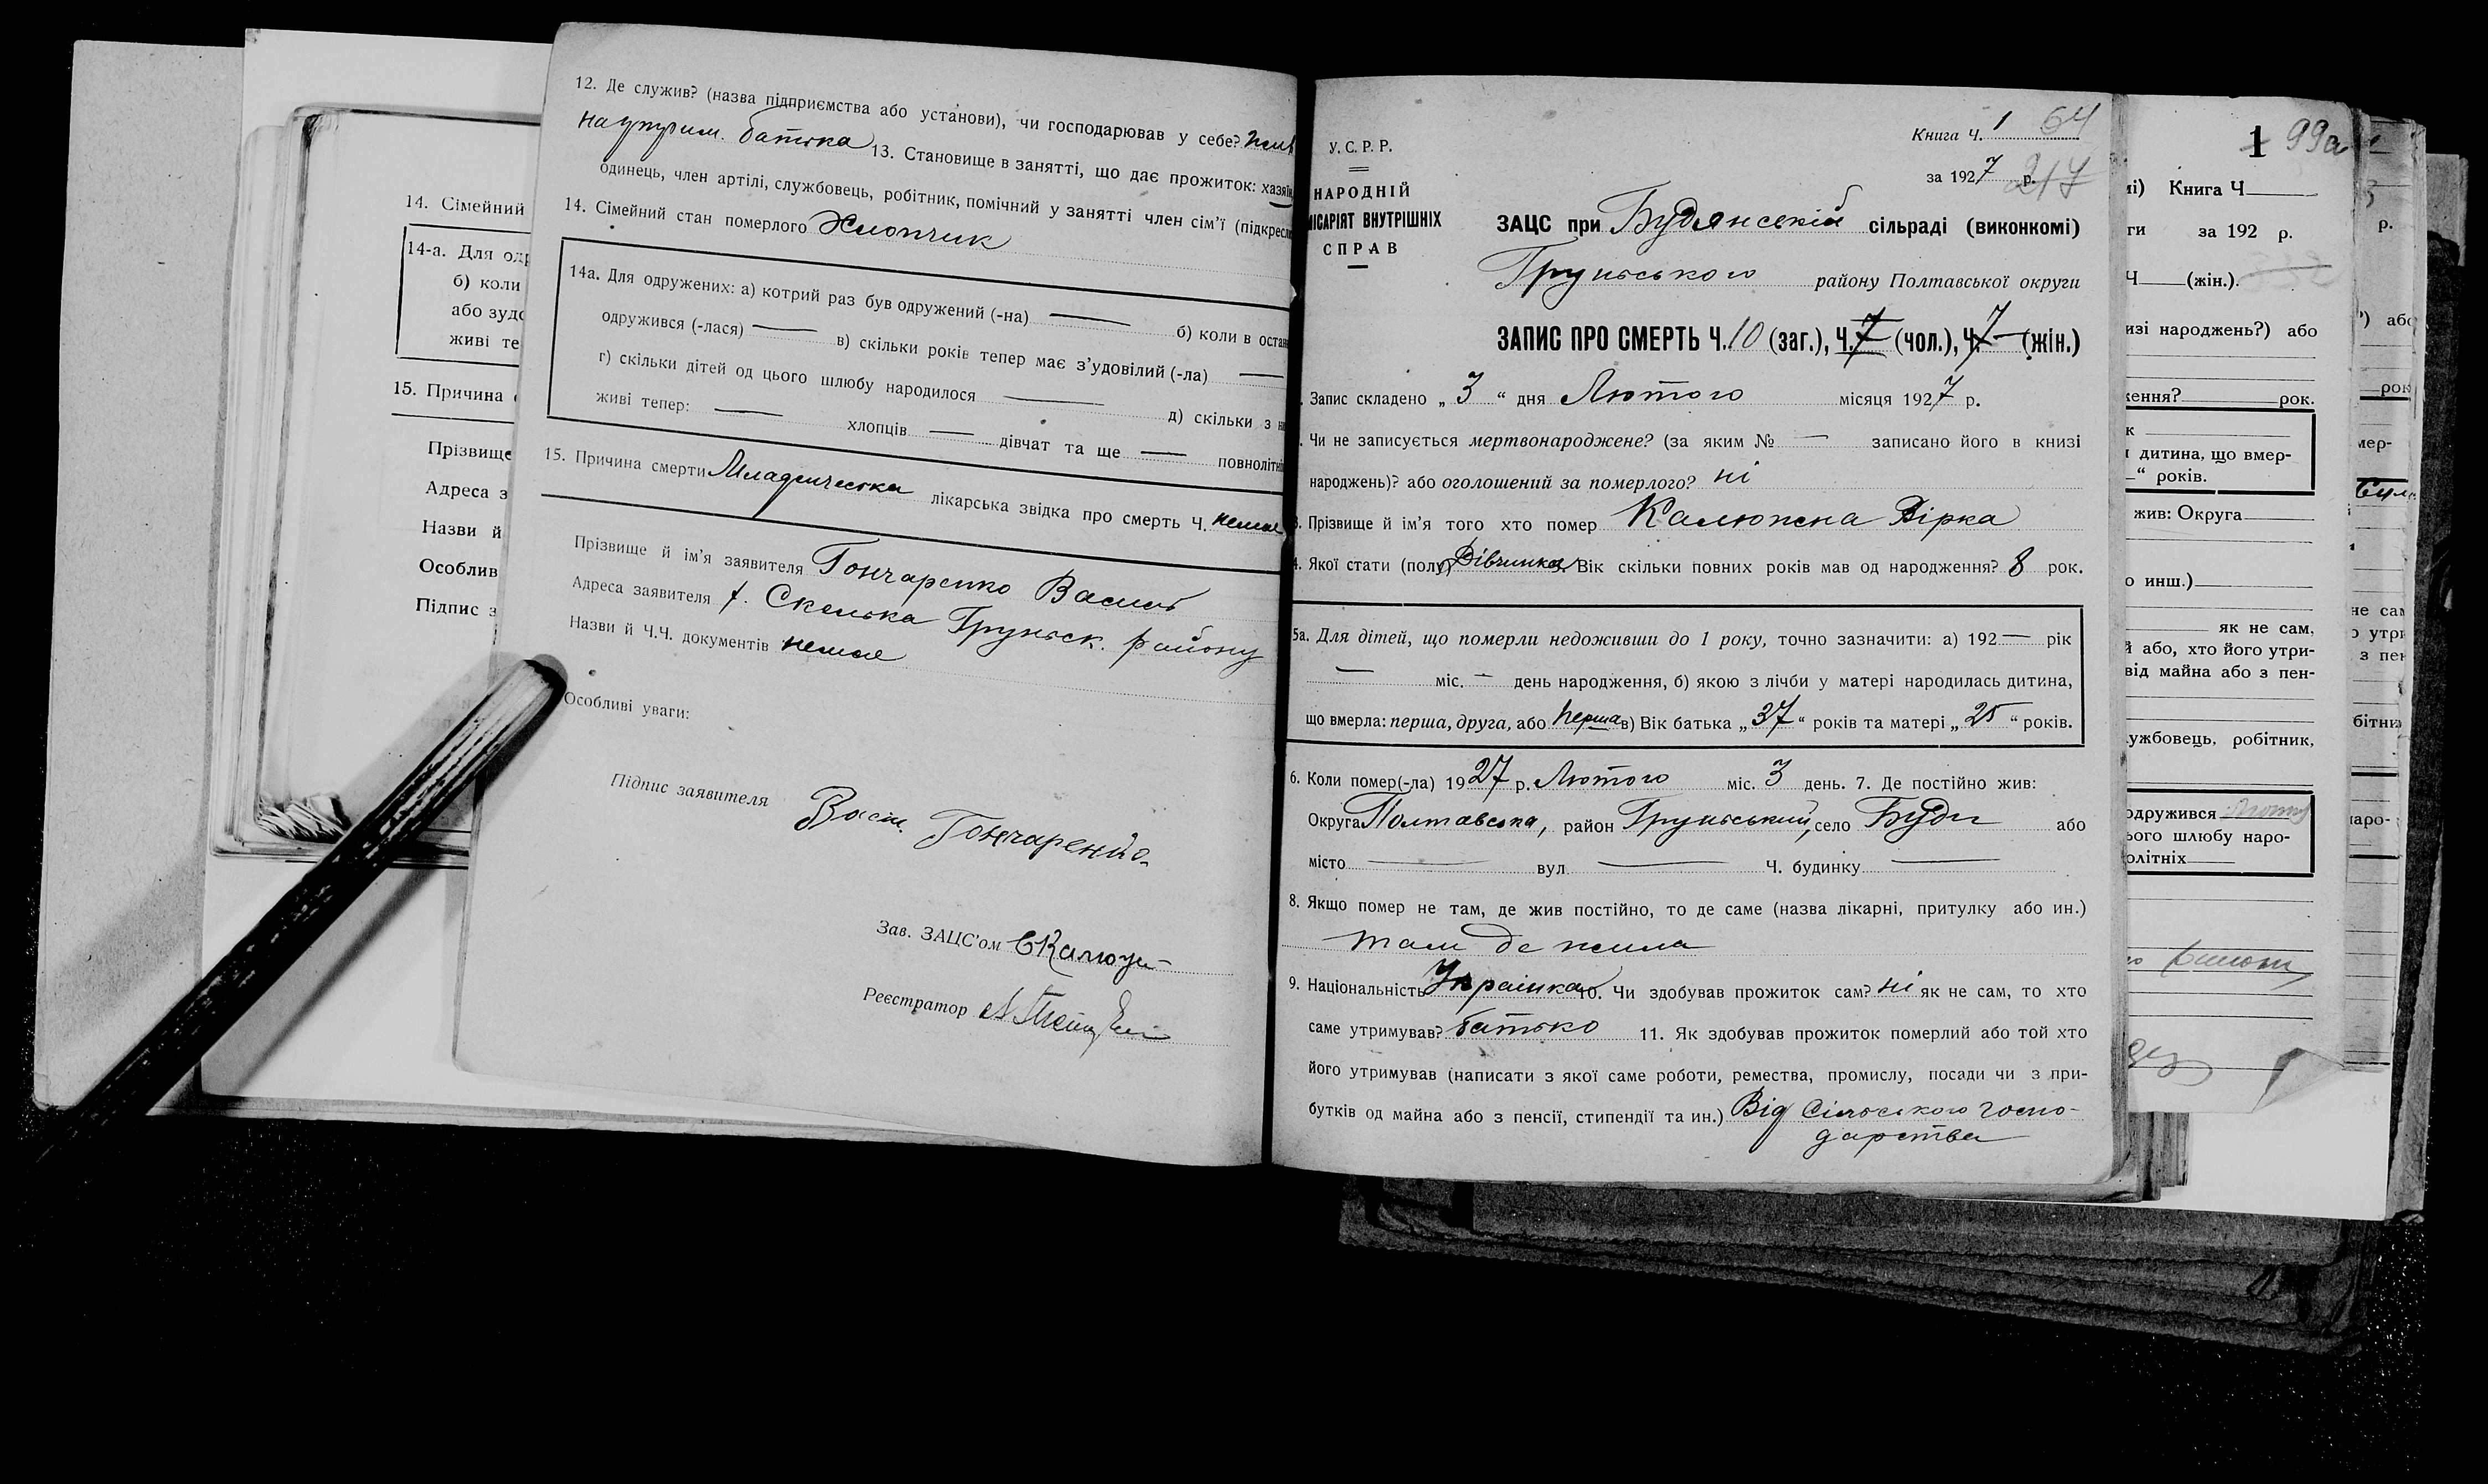 14. Сімейний
14-а. Для од
б) коли
або зудо
живі те
15. Причина
Прізвище
Адреса з
Назви й
Особлив
Підпис з
12. Де служив? (назва підприємства або установи), чи господарював у себе?
на утрим. батька 13. Становище в занятті, що дає прожиток: хазяїн
одинець, член артілі, службовець, робітник, помічний у занятті член сім'ї (підкресл
14. Сімейний стан померлого Хлопчик
14а. Для одружених: а) котрий раз був одружений (-на) — б) коли в остан
одружився (-лася) — в) скільки років тепер має з'удовілий (-ла) —
г) скільки дітей од цього шлюбу народилося — д) скільки з н
живі тепер: — хлопців — дівчат та ще — повнолітні
15. Причина смерти Младенческа лікарська звідка про смерть Ч. немає
Прізвище й ім'я заявителя Гончаренко Василь
Адреса заявителя х. Скелька Груньск. району
Назви й Ч.Ч. документів немає
Особливі уваги:
Підпис заявителя Васил. Гончаренко
Зав. ЗАЦС'ом СКалюж
Реєстратор
Книга Ч. 1 64
У.С.Р.Р.
за 1927 р. 217
НАРОДНІЙ
ІСАРІЯТ ВНУТРІШНІХ
СПРАВ
ЗАЦС при Будянській сільраді (виконкомі)
Груньського району Полтавської округи
ЗАПИС ПРО СМЕРТЬ Ч. 10 (заг.), Ч. 7 (чол.), Ч. 7 (жін.)
Запис складено „ 3 “ дня Лютого місяця 1927 р.
Чи не записується мертвонароджене? (за яким № — записано його в книзі
народжень)? або оголошений за померлого? ні
3. Прізвище й ім'я того хто помер Калюжна Вірка
4. Якої стати (полу) Дівчинка. Вік скільки повних років мав од народження? 8 рок.
5а. Для дітей, що померли недоживши до 1 року, точно зазначити: а) 192— рік
— міс. — день народження, б) якою з лічби у матері народилась дитина,
що вмерла: перша, друга, або перша в) Вік батька „ 37 “ років та матері „ 25 “ років.
6. Коли помер(-ла) 1927 р. Лютого міс. 3 день. 7. Де постійно жив:
Округа Полтавська, район Груньський, село Буди або
місто — вул — Ч. будинку —
8. Якщо помер не там, де жив постійно, то де саме (назва лікарні, притулку або ин.)
там де жила
9. Національність Украінка 10. Чи здобував прожиток сам? ні як не сам, то хто
саме утримував? батько 11. Як здобував прожиток померлий або той хто
його утримував (написати з якої саме роботи, ремества, промислу, посади чи з при-
бутків од майна або з пенсії, стипендії та ин.) Від Сільського госпо-
дарства
1 99а
мі) Книга Ч
ги за 192 р.
Ч (жін.).
изі народжень?) або
ження? рок.
к
дитина, що вмер-
“ років.
жив: Округа
о инш.)
як не сам,
й або, хто його утри-
від майна або з пен-
ужбовець, робітник,
одружився
ього шлюбу наро-
олітніх
р.
') або
рок
мер-
не сам
о утри
з пен
бітни
наро-